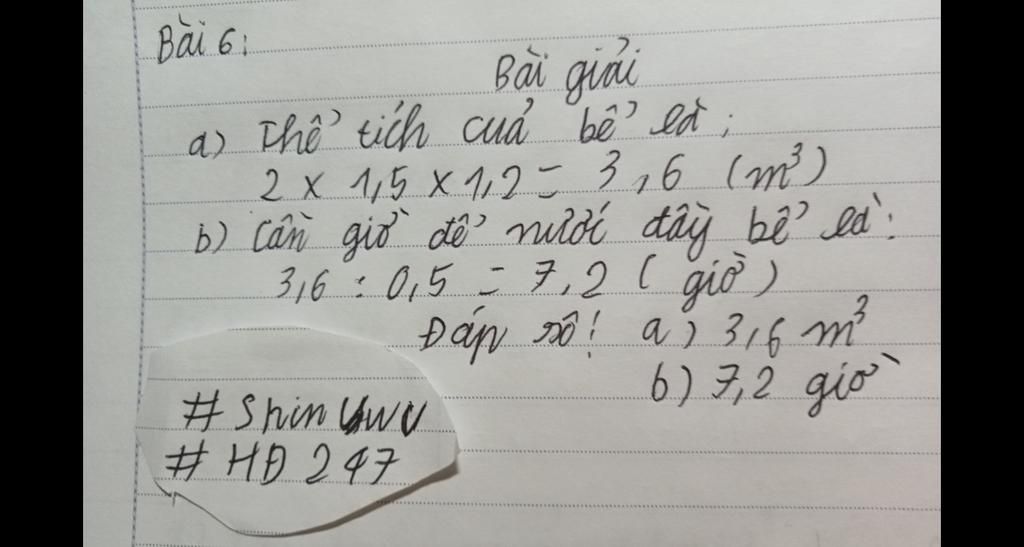 Bài 6:
Bài giải
a) Thể tích cuả bể là:
2 x 1,5 x 1,2 = 3,6 (m³)
b) Cần giờ để nước đầy bể là:
3,6 : 0,5 = 7,2 (giờ)
Đáp số: a) 3,6 m³
b) 7,2 giờ
# Shin UwU
# HĐ 247